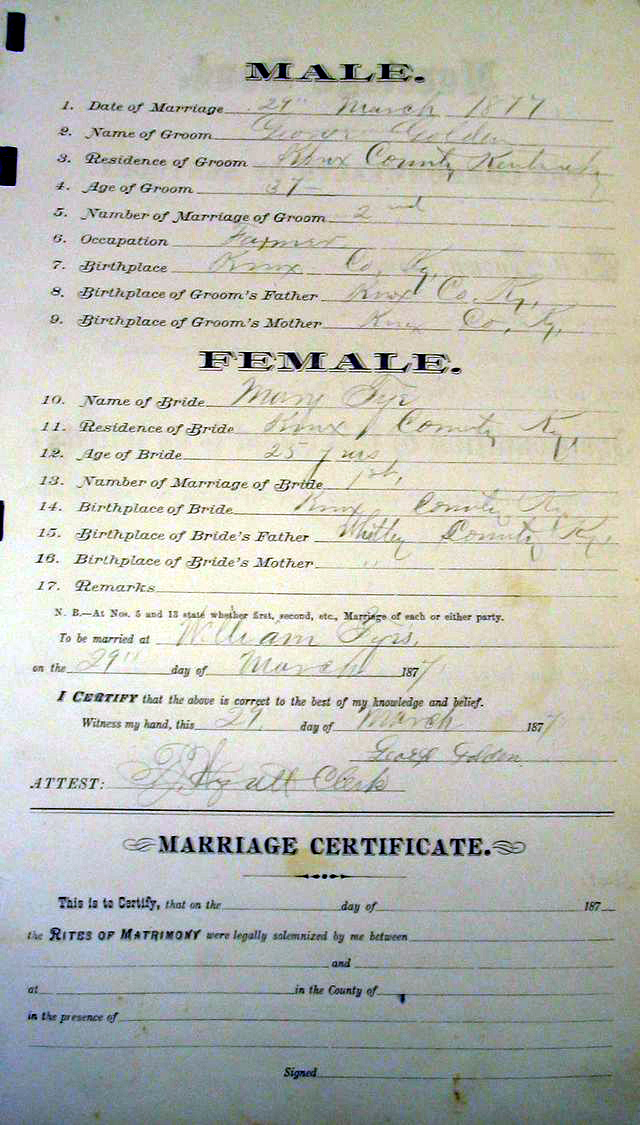 MALE.
1. Date of Marriage 29" March 1877
2. Name of Groom George Golden
3. Residence of Groom Knox County Kentucky
4. Age of Groom 37
5. Number of Marriage of Groom 2nd
6. Occupation Farmer
7. Birthplace Knox Co, Ky,
8. Birthplace of Groom's Father Knox Co. Ky,
9. Birthplace of Groom's Mother Knox Co, Ky,
FEMALE.
10. Name of Bride Mary
11. Residence of Bride Knox County Ky,
12. Age of Bride 25 yrs
13. Number of Marriage of Bride 1st,
14. Birthplace of Bride Knox County Ky
15. Birthplace of Bride's Father Whitley County Ky,
16. Birthplace of Bride's Mother "
17. Remarks
N. B.—At Nos. 5 and 13 state whether first, second, etc., Marriage of each or either party.
To be married at William
on the 29" day of March 1877
I CERTIFY that the above is correct to the best of my knowledge and belief.
Witness my hand, this 29 day of March 1877
George Golden
ATTEST: Clerk
MARRIAGE CERTIFICATE.
This is to Certify, that on the day of 187
the RITES OF MATRIMONY were legally solemnized by me between
and
at in the County of
in the presence of
Signed